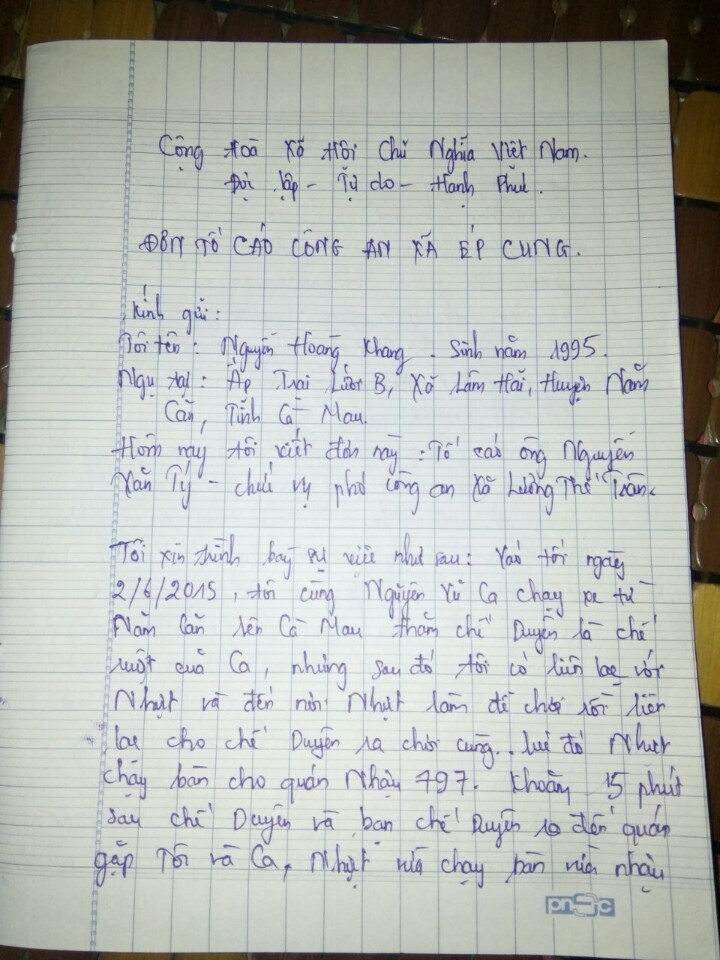 Cộng Hoà Xã Hội Chủ Nghĩa Việt Nam.
Độc lập - Tự do - Hạnh Phúc.
ĐƠN TỐ CÁO CÔNG AN XÃ ÉP CUNG.
Kính gửi:
Tôi tên: Nguyễn Hoàng Khang. Sinh năm 1995.
Ngụ tại: Ấp Trại Lưới B, Xã Lâm Hải, Huyện Năm
Căn, Tỉnh Cà Mau.
Hôm nay tôi viết đơn này: Tố cáo ông Nguyễn
Văn Tý - chức vụ phó công an Xã Lương Thế Trân.
Tôi xin trình bày sự việc như sau: Vào tối ngày
2/6/2015, tôi cùng Nguyễn Vũ Ca chạy xe từ
Năm Căn lên Cà Mau thăm chế Duyên là chế
ruột của Ca, nhưng sau đó tôi có liên lạc với
Nhựt và đến nơi Nhựt làm để chơi rồi liên
lạc cho chế Duyên ra chơi cùng. lúc đó Nhựt
chạy bàn cho quán Nhậu 797. Khoảng 15 phút
sau chế Duyên và bạn chế Duyên ra đến quán
gặp Tôi và Ca, Nhựt vừa chạy bàn vừa nhậu
pnsc